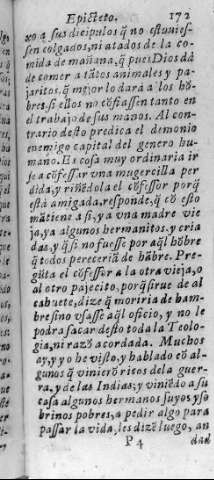 Epicteto. 172
xo a sus dicipulos q̃ no estuuies-
sen colgados, ni atados de la co-
mida de mañana, q̃ pues Dios dà
de comer a tãtos animales y pa-
jaritos, q̃ mejor lo darà a los hõ-
bres, si ellos no cõfiassen tanto en
el trabajo de sus manos. Al con-
trario desto predica el demonio
enemigo capital del genero hu-
mano. Es cosa muy ordinaria ir
se a cõfessar vna mugercilla per
dida, y riñẽdola el cõfessor porq̃
està amigada, responde, q̃ cõ esto
mãtiene a si, y a vna madre vie
ja, y a algunos hermanitos, y cria
das, y q̃ si no fuesse por aq̃l hõbre
q̃ todos pereceriã de hãbre. Pre-
gũta el cõfessor a la otra vieja, o
al otro pajecito, porq̃ sirue de al
cahuete, dize q̃ moriria de ham-
bre sino vsasse aq̃l oficio, y no le
podra sacar desto toda la Teolo-
gia, ni razõ acordada. Muchos
ay, y yo he visto, y hablado cõ al-
gunos q̃ vinierõ ricos de la guer-
ra, y de las Indias, y viniẽdo a su
casa algunos hermanos suyos y so
brinos pobres, a pedir algo para
passar la vida, les dizẽ luego, an
P 4 dad